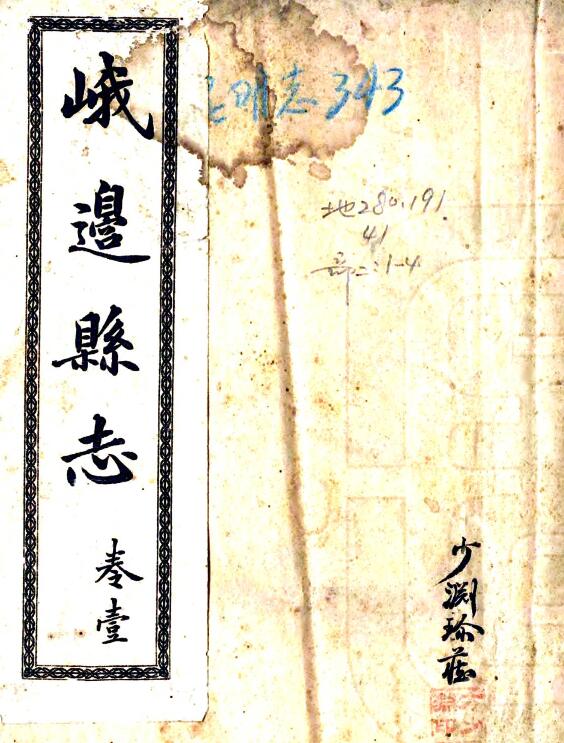 峨邊縣志
卷壹
志343
地280.191
41
部二:1-4
少渊珍藏